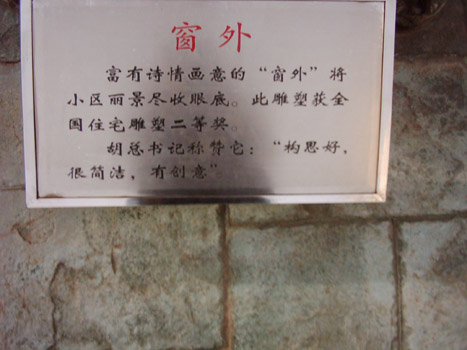 窗外
富有诗情画意的“窗外”将
小区丽景尽收眼底。此雕塑获全
国住宅雕塑二等奖。
胡总书记称赞它：“构思好，
很简洁，有创意”